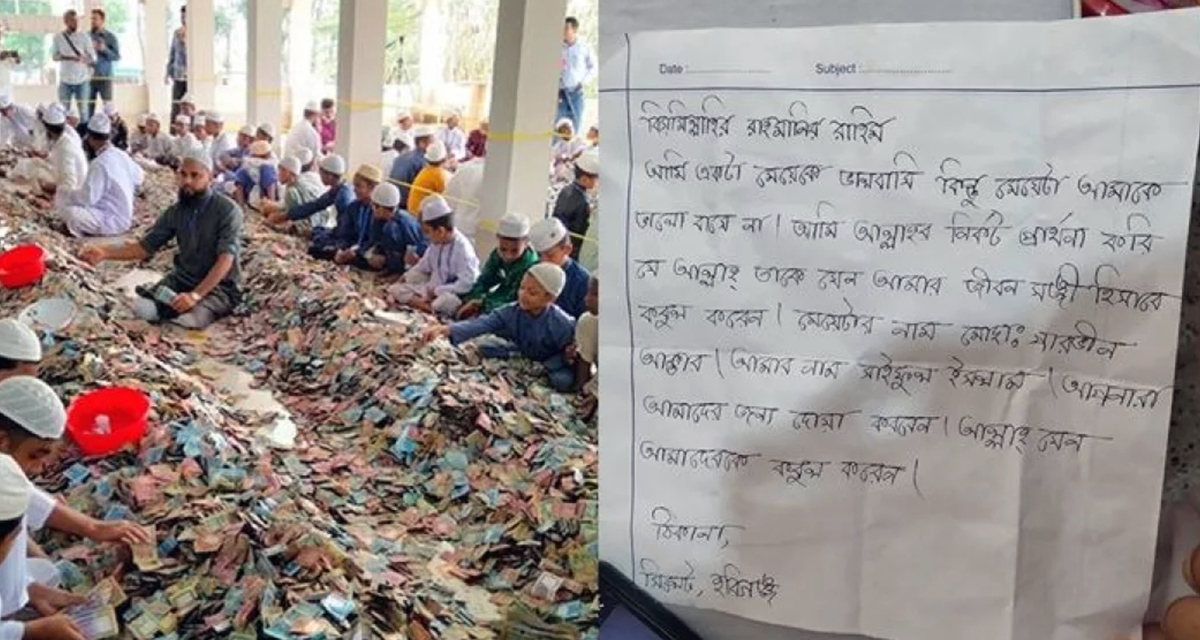 Date :........................ Subject :........................
বিসমিল্লাহির রাহমানির রাহিম
আমি একটা মেয়েকে ভালবাসি কিন্তু মেয়েটা আমাকে
ভালো বাসে না। আমি আল্লাহর নিকট প্রার্থনা করি
যে আল্লাহ্ তাকে যেন আমার জীবন সঙ্গী হিসাবে
কবুল করেন। মেয়েটার নাম মোছাঃ পারভীন
আক্তার। আমার নাম সাইফুল ইসলাম। আপনারা
আমাদের জন্য দোয়া করবেন। আল্লাহ্ যেন
আমাদেরকে কবুল করেন।
ঠিকানা,
সিলেট, হবিগঞ্জ